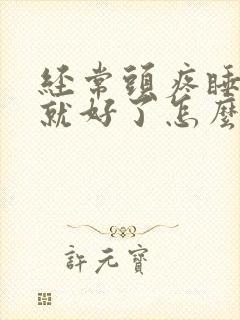 经常頭疼睡
就好了怎麽
許元寶